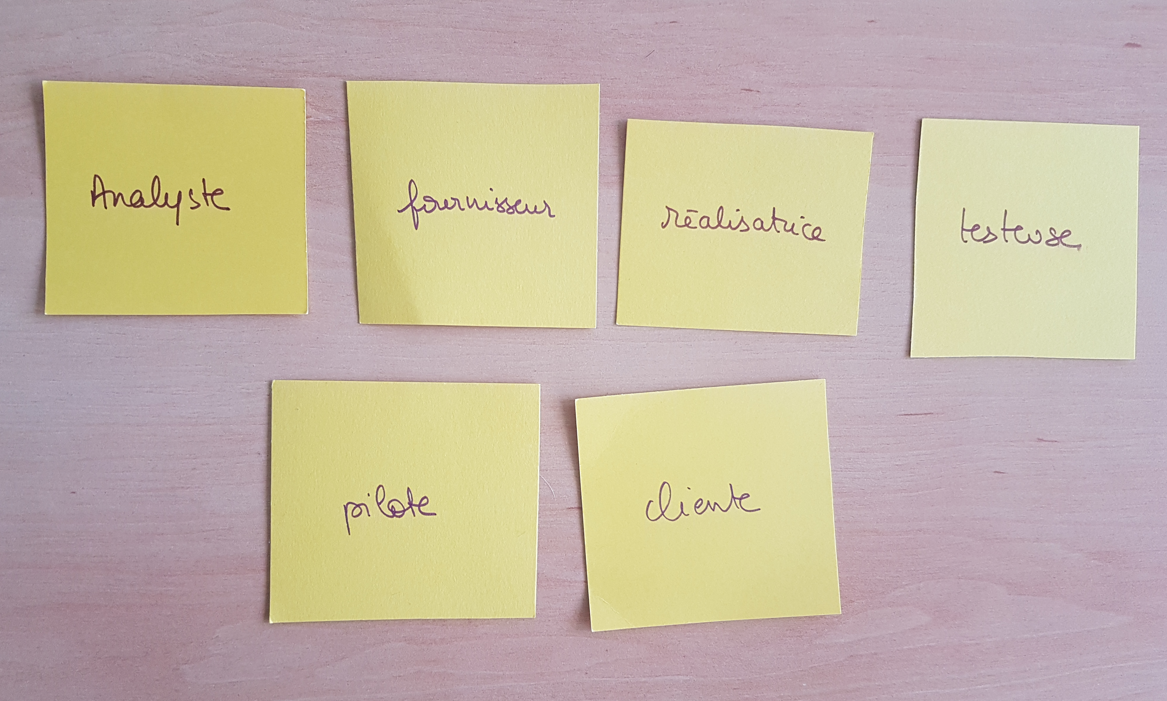 Analyste
fournisseur
réalisatrice
testeuse
pilote
cliente